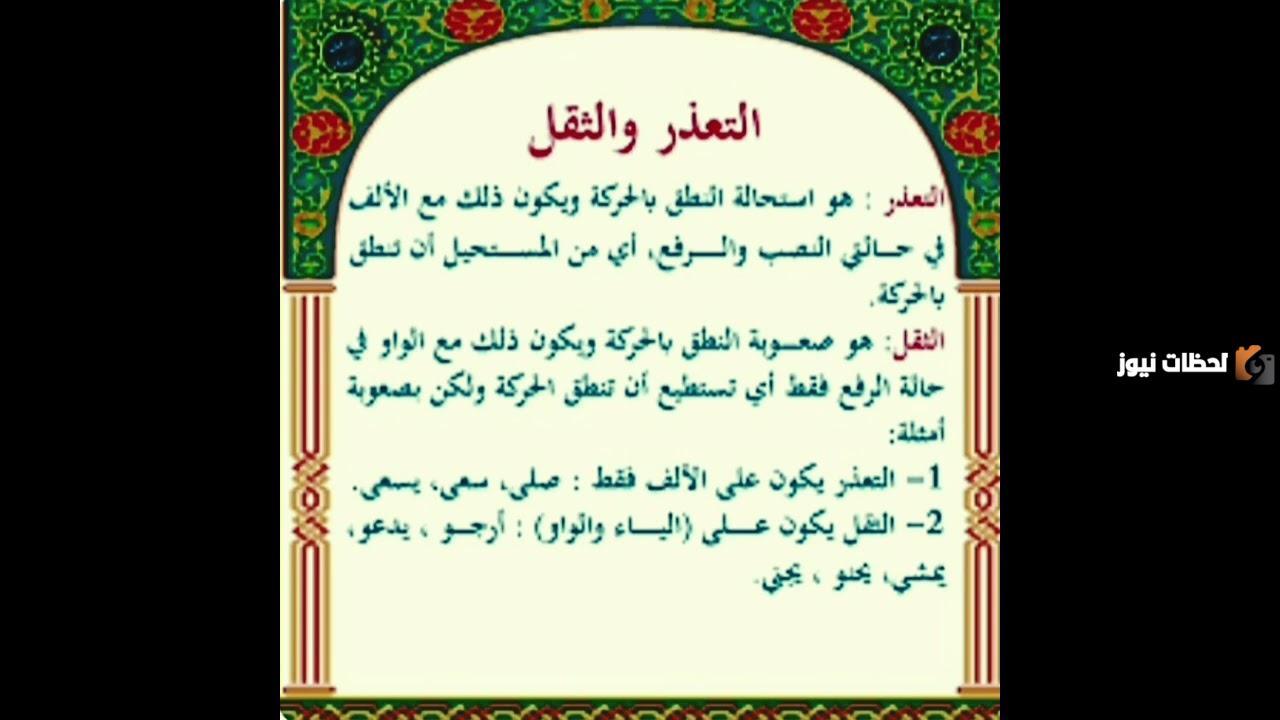 التعذر والثقل
التعذر : هو استحالة النطق بالحركة ويكون ذلك مع الألف
في حـالتي النصب والـرفع، أي من المستحيل أن تنطق
بالحركة.
الثقل: هو صعوبة النطق بالحركة ويكون ذلك مع الواو في
حالة الرفع فقط أي تستطيع أن تنطق الحركة ولكن بصعوبة
أمثلة:
1- التعذر يكون على الألف فقط : صلى، سعى، يسعى.
2- الثقل يكون على (الياء والواو) : أرجو ، يدعو،
يمشي، يحنو ، يجني.
لحظات نيوز